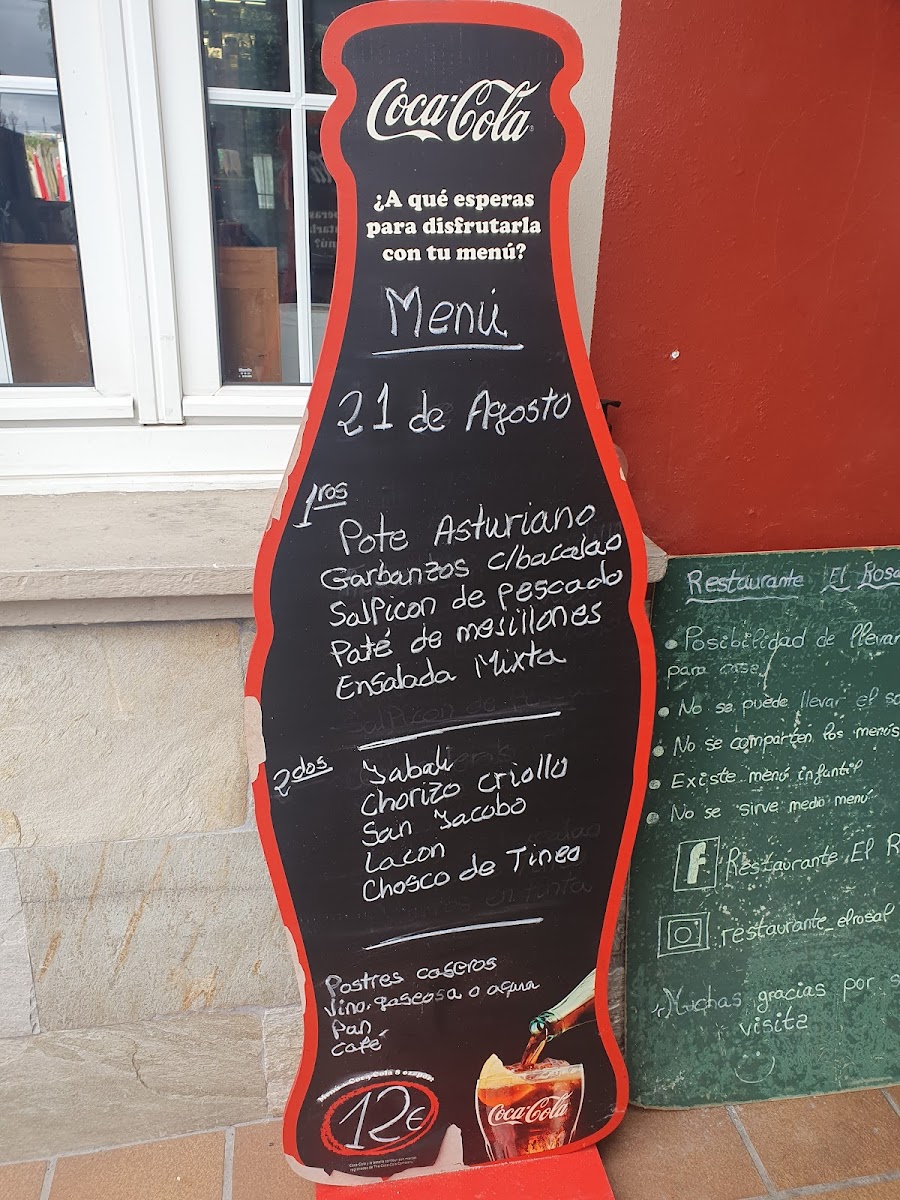 Coca-Cola
¿A qué esperas
para disfrutarla
con tu menú?
Menú
21 de Agosto
1ros
Pote Asturiano
Garbanzos c/bacalao
Salpicon de pescado
Paté de mesillones
Ensalada Mixta
2dos
Jabali
Chorizo criollo
San Jacobo
Lacon
Chosco de Tineo
Postres caseros
Vino, gaseosa o agua
Pan
Café
12€
Coca-Cola
Restaurante El Rosa
Posibilidad de llevar
para casa
No se puede llevar el
No se comparten los menús
Existe menú infantil
No se sirve medio menú
f Restaurante El R
restaurante_elrosal
Muchas gracias por s
visita